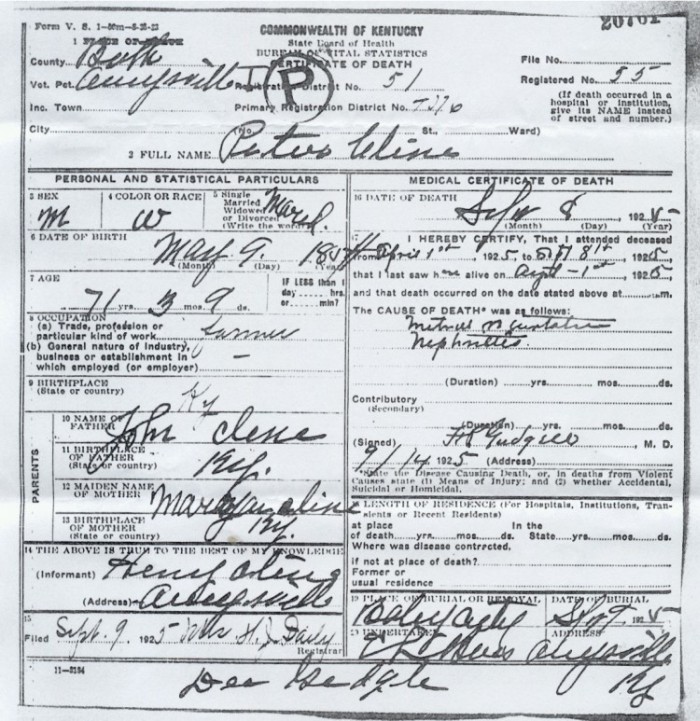 Form V. S. 1-50m-5-25-23
20761
COMMONWEALTH OF KENTUCKY
State Board of Health
BUREAU OF VITAL STATISTICS
CERTIFICATE OF DEATH
1 PLACE OF DEATH
County Bath
Vot. Pct. Owingsville 1
Inc. Town
City
P
Registration District No. 51
Primary Registration District No.
(No. St., Ward)
File No.
Registered No. 55
(If death occurred in a hospital or institution, give its NAME instead of street and number.)
2 FULL NAME Peter Cline
PERSONAL AND STATISTICAL PARTICULARS
3 SEX
M
4 COLOR OR RACE
W
5 Single
Married
Widowed
or Divorced
(Write the word)
Mard.
6 DATE OF BIRTH
May 9, 185
(Month) (Day) (Year)
7 AGE
71 yrs. 3 mos. 9 ds.
IF LESS than 1
day hrs.
or min?
8 OCCUPATION
(a) Trade, profession or
particular kind of work Farmer
(b) General nature of industry,
business or establishment in
which employed (or employer) -
9 BIRTHPLACE
(State or country)
Ky
PARENTS
10 NAME OF
FATHER
John Cline
11 BIRTHPLACE
OF FATHER
(State or country)
Ky.
12 MAIDEN NAME
OF MOTHER
Mary Jane Cline
13 BIRTHPLACE
OF MOTHER
(State or country)
Ky.
14 THE ABOVE IS TRUE TO THE BEST OF MY KNOWLEDGE
(Informant) Henry Cline
(Address) Owingsville
15
Filed Sept. 9, 1925 Mrs. H. J. Daily
Registrar
11-3184
MEDICAL CERTIFICATE OF DEATH
16 DATE OF DEATH
Sept 8, 1925
(Month) (Day) (Year)
I HEREBY CERTIFY, That I attended deceased
from April 1st, 1925 to Sept 8th, 1925
that I last saw him alive on Sept-1st, 1925
and that death occurred on the date stated above at m.
The CAUSE OF DEATH* was as follows:
Mitral Regurgitation
Nephritis
(Duration) yrs. mos. ds.
Contributory
(Secondary)
(Duration) yrs. mos. ds.
(Signed) Gudgell, M. D.
9/14 1925 (Address)
*State the Disease Causing Death, or, in deaths from Violent
Causes state (1) Means of Injury; and (2) whether Accidental,
Suicidal or Homicidal.
LENGTH OF RESIDENCE (For Hospitals, Institutions, Transients or Recent Residents)
at place In the
of death yrs. mos. ds. State yrs. mos. ds.
Where was disease contrcted,
if not at place of death?
Former or
usual residence
19 PLACE OF BURIAL OR REMOVAL
DATE OF BURIAL
Sept. 1925
20 UNDERTAKER
ADDRESS
Owingsville
Ky